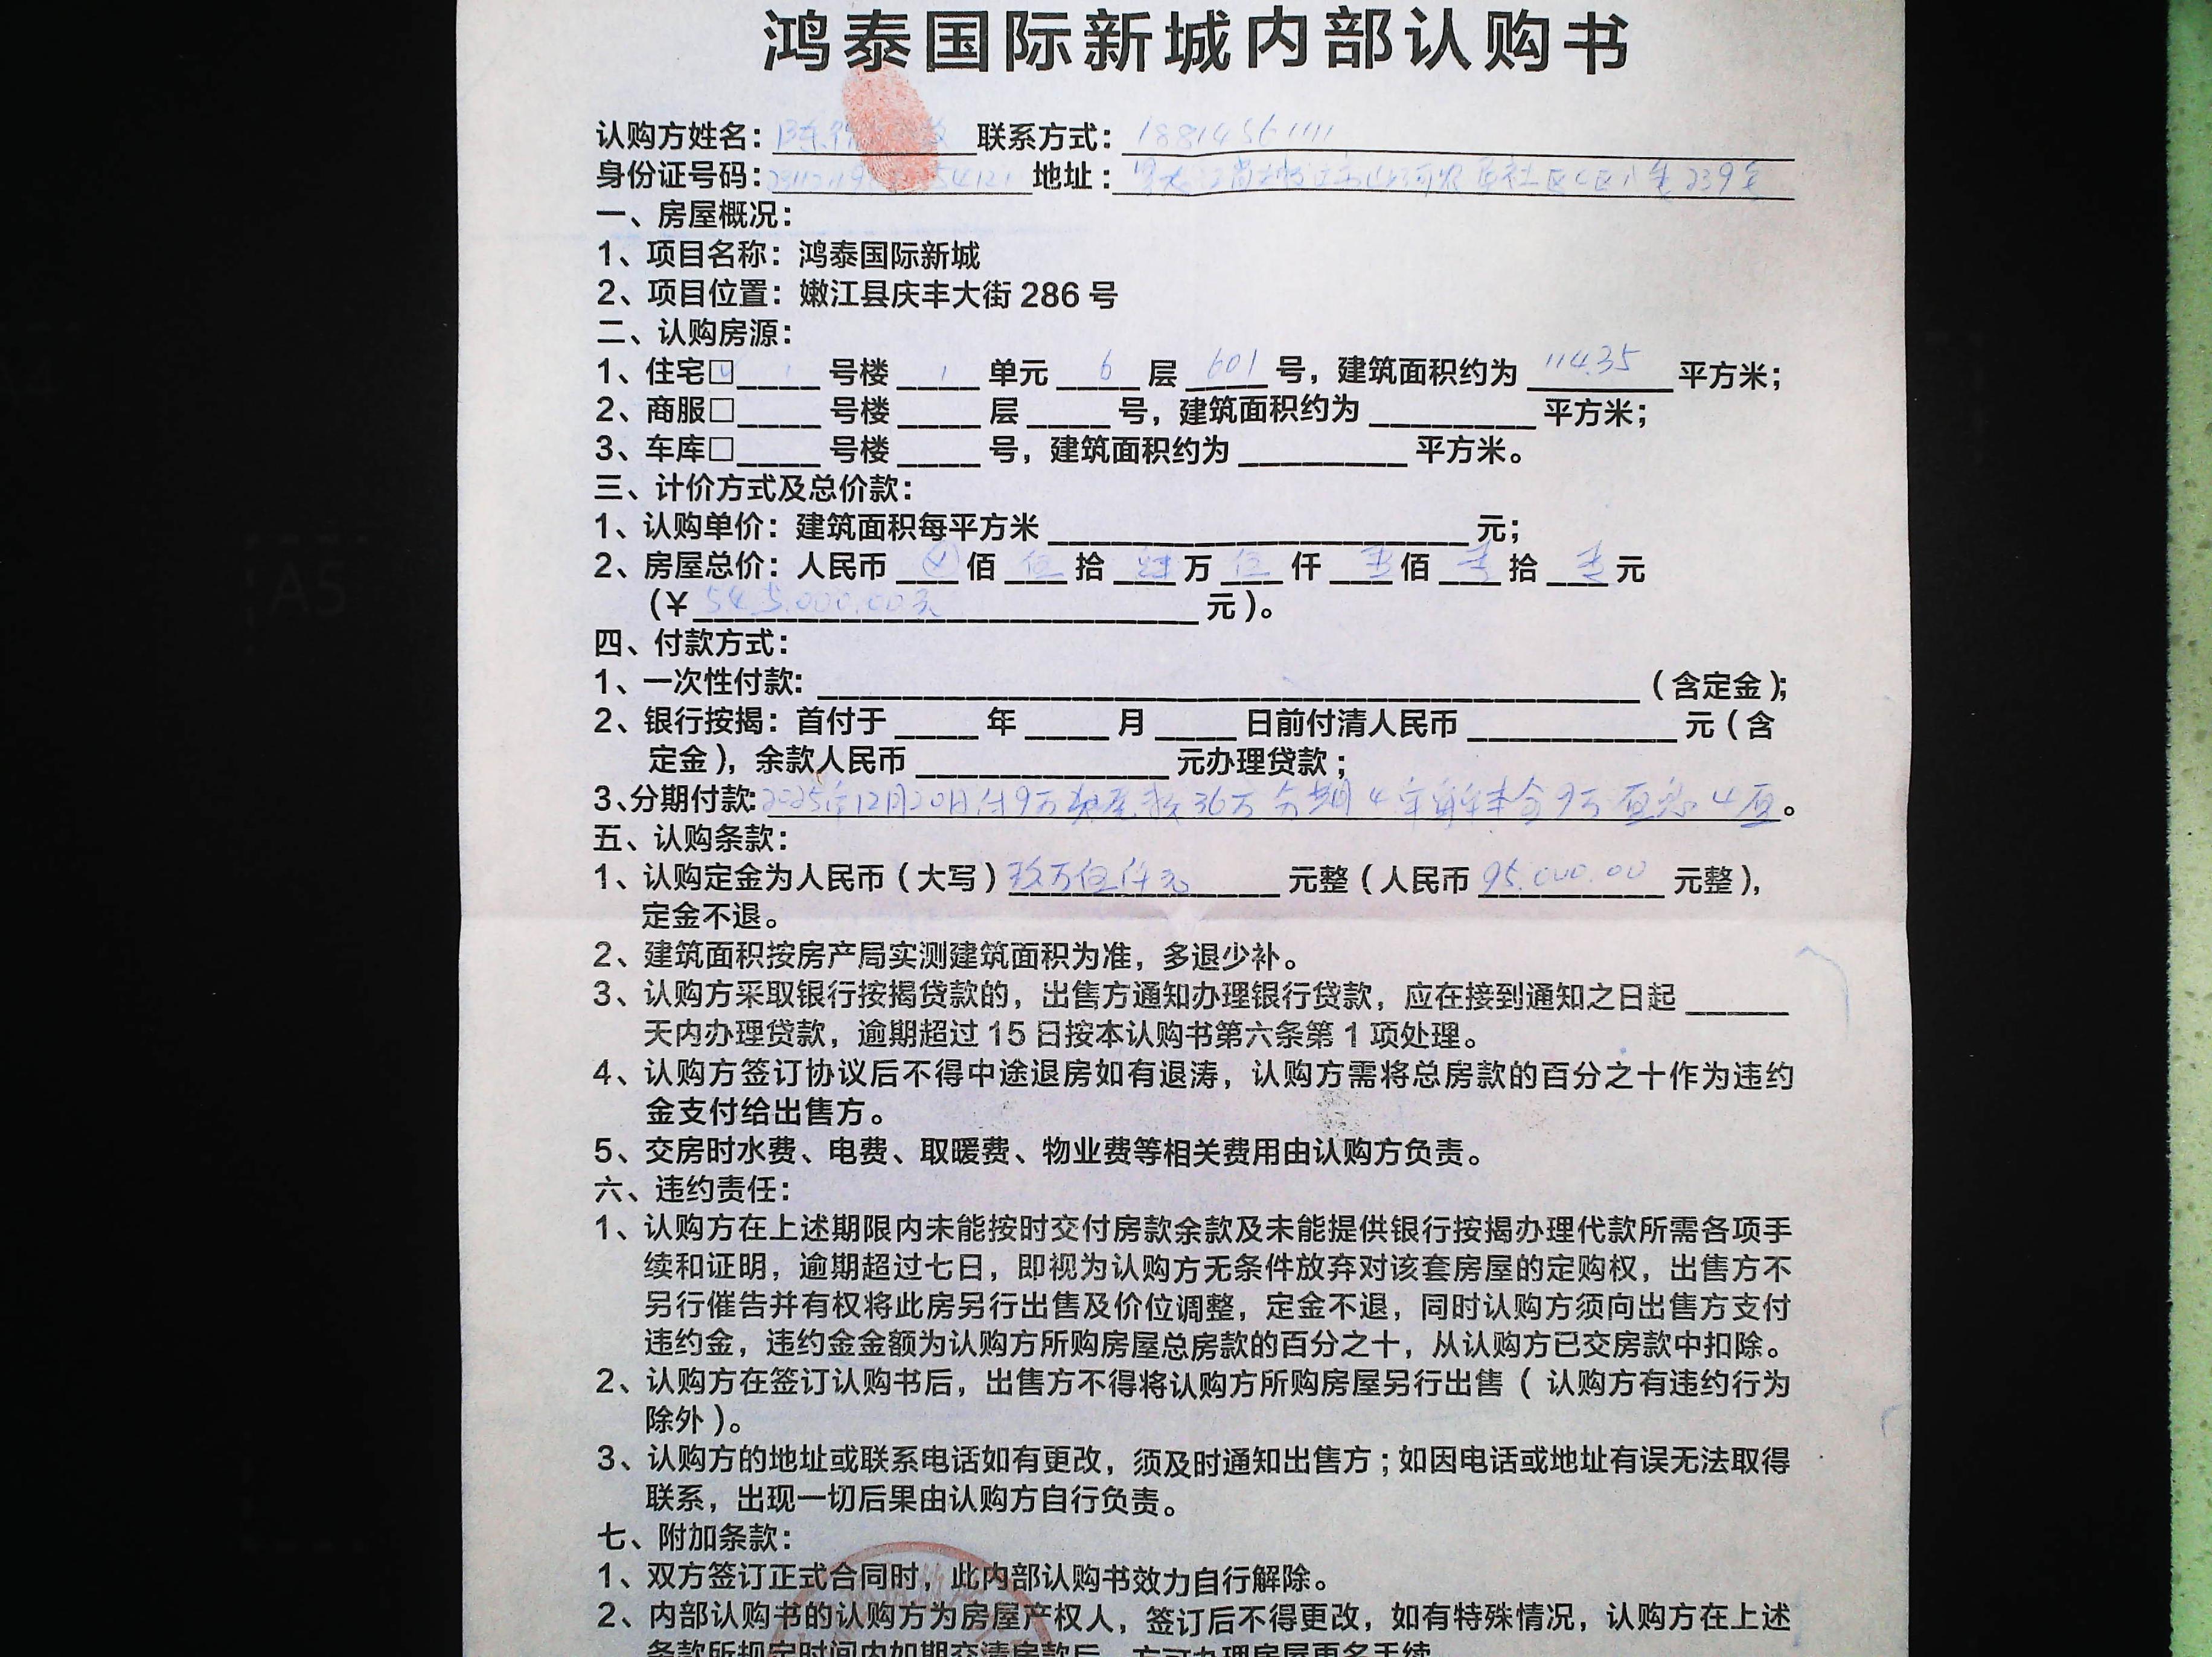 鸿泰国际新城内部认购书
认购方姓名：陈 联系方式：18814561111
身份证号码： 地址：
一、房屋概况：
1、项目名称：鸿泰国际新城
2、项目位置：嫩江县庆丰大街 286 号
二、认购房源：
1、住宅□____ 号楼 1 单元 6 层 601 号，建筑面积约为 114.35 平方米；
2、商服□____ 号楼 ____ 层 ____ 号，建筑面积约为 ________ 平方米；
3、车库□____ 号楼 ____ 号，建筑面积约为 ________ 平方米。
三、计价方式及总价款：
1、认购单价：建筑面积每平方米 ____________________ 元；
2、房屋总价：人民币 佰 伍 拾 肆 万 伍 仟 佰 拾 元
（¥ 545.000.00元 元）。
四、付款方式：
1、一次性付款: ____________________（含定金）；
2、银行按揭：首付于 ____ 年 ____ 月 ____ 日前付清人民币 __________ 元（含
定金），余款人民币 ____________ 元办理贷款；
3、分期付款: 2025年12月20日付9万 36万分期4年 本金9万 4 。
五、认购条款：
1、认购定金为人民币（大写）玖万伍仟元 元整（人民币 95.000.00 元整），
定金不退。
2、建筑面积按房产局实测建筑面积为准，多退少补。
3、认购方采取银行按揭贷款的，出售方通知办理银行贷款，应在接到通知之日起 _____
天内办理贷款，逾期超过 15 日按本认购书第六条第 1 项处理。
4、认购方签订协议后不得中途退房如有退涛，认购方需将总房款的百分之十作为违约
金支付给出售方。
5、交房时水费、电费、取暖费、物业费等相关费用由认购方负责。
六、违约责任：
1、认购方在上述期限内未能按时交付房款余款及未能提供银行按揭办理代款所需各项手
续和证明，逾期超过七日，即视为认购方无条件放弃对该套房屋的定购权，出售方不
另行催告并有权将此房另行出售及价位调整，定金不退，同时认购方须向出售方支付
违约金，违约金金额为认购方所购房屋总房款的百分之十，从认购方已交房款中扣除。
2、认购方在签订认购书后，出售方不得将认购方所购房屋另行出售（认购方有违约行为
除外）。
3、认购方的地址或联系电话如有更改，须及时通知出售方；如因电话或地址有误无法取得
联系，出现一切后果由认购方自行负责。
七、附加条款：
1、双方签订正式合同时，此内部认购书效力自行解除。
2、内部认购书的认购方为房屋产权人，签订后不得更改，如有特殊情况，认购方在上述
条款所规定时间内如期交清房款后，方可办理房屋更名手续